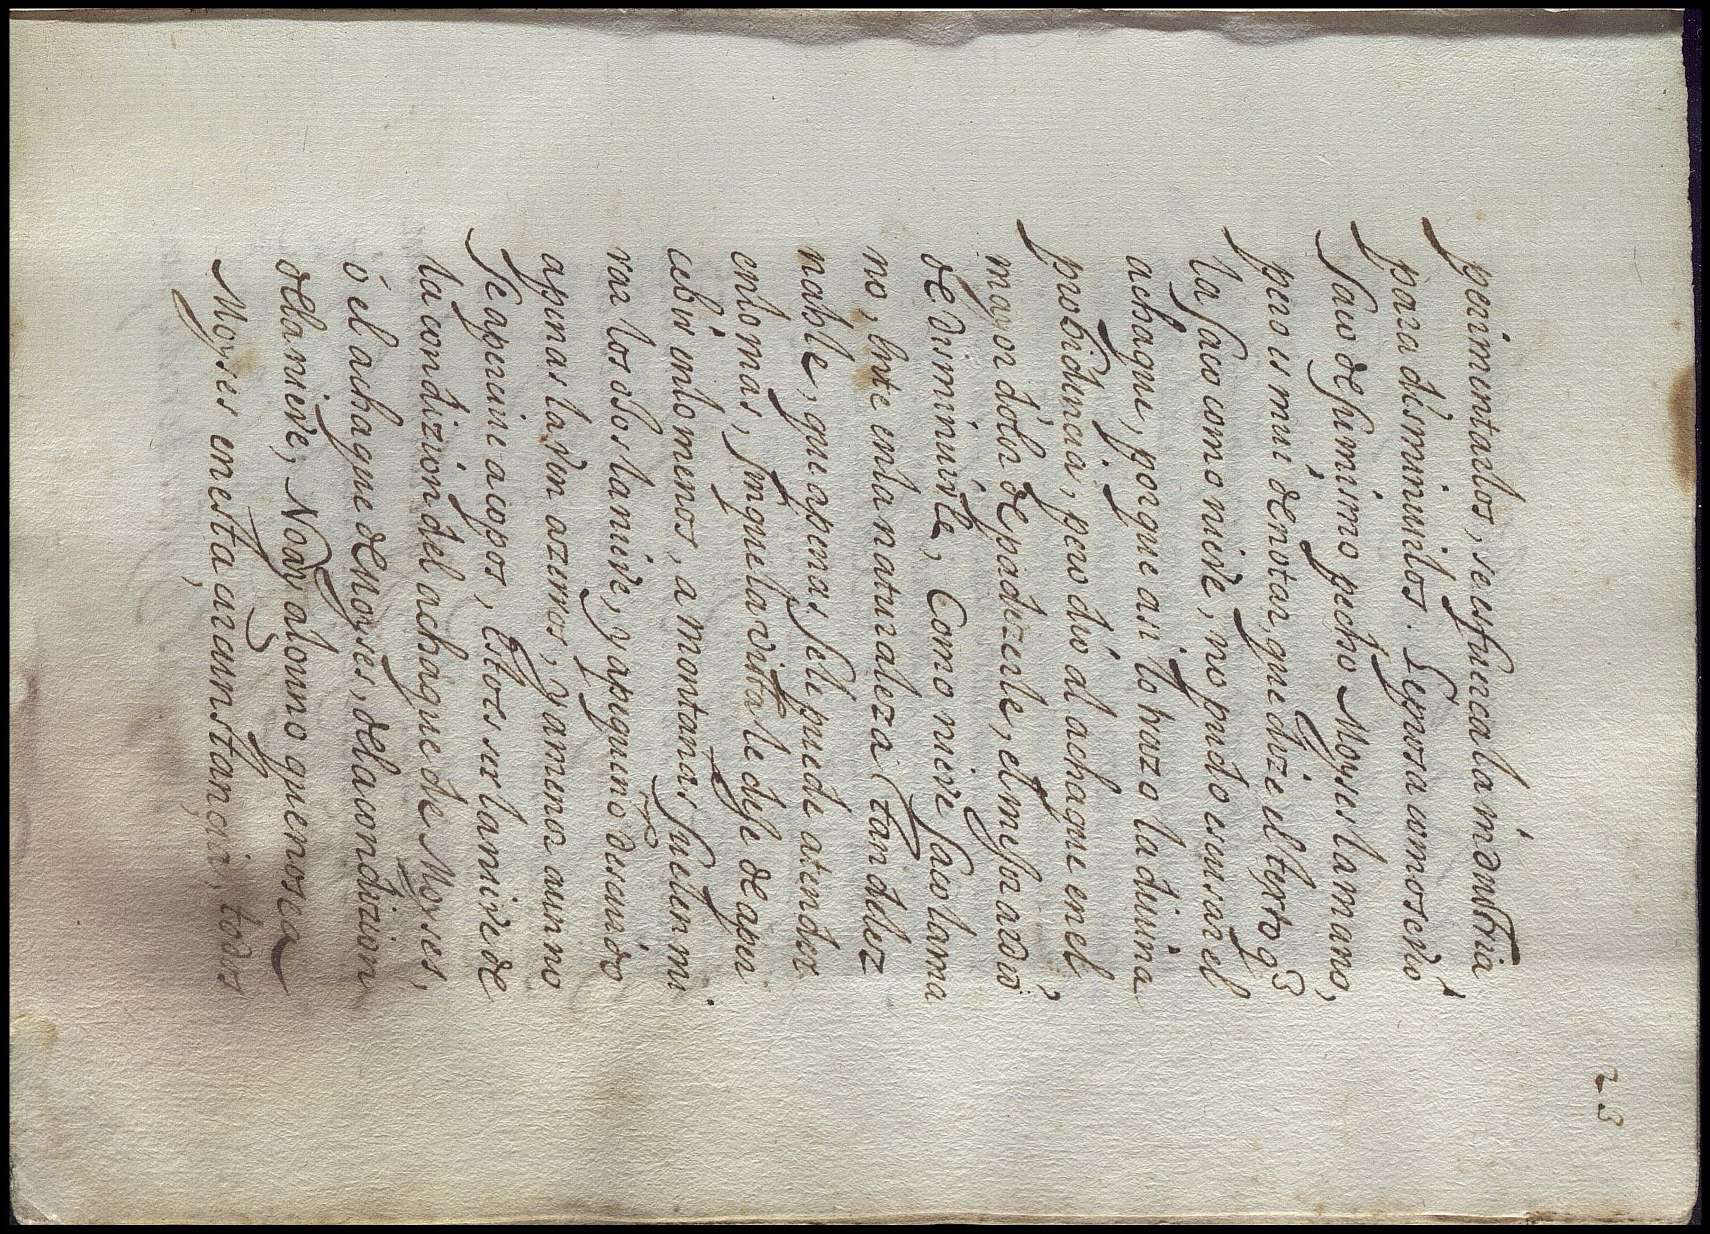 23
perimentarlos, se esfuerca la industria
para disminuirlos. Leprosa como se vio
saco de su mismo pecho Moyses la mano,
pero es mui de notar, que dize el testo q̃
la saco como nieve, no pudo escusar el
achaque, porque asi lo hizo la divina
probidencia, pero dio al achaque en el
mayor dolor de padezerle, el mesmo achio
de disminuirle, Como nieve saco la ma
no, ente en la naturaleza tan delez
nable, que apenas se le puede atender
en lo mas, sin que la vista le deje de aper
cebir en lo menos, a montanas suelen mi
rar los ojos la nieve, y a pequeño descuido
apenas la ven azimos, y a menos aun no
se aperciue a copos, Esto es ser la nieve de
la condizion del achaque de Moyses,
ó el achaque de moyses, de la condizion
de la nieve, No ay alguno que no sea
Moyses en esta circunstançia, todos